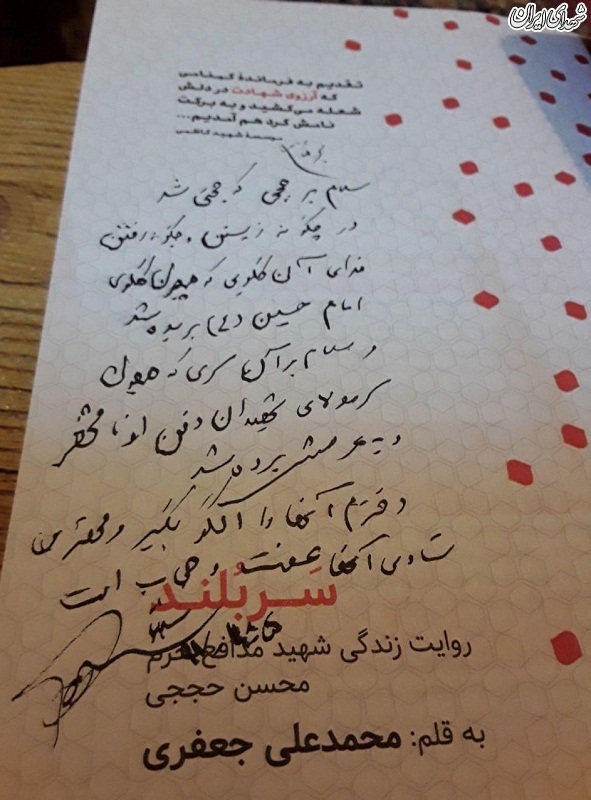 شهدای ایران
تقدیم به فرماندهٔ گمنامی
که آرزوی شهادت در دلش
شعله می‌کشید و به برکت
نامش گرد هم آمدیم...
موسسهٔ شهید کاظمی
سلام بر حججی که حجتی شد
در چگونه زیستن و چگونه رفتن
فدای آن گلویی که همچون گلوی
امام حسین (ع) بریده شد
و سلام بر آن سری که همچون
سر مولای شهیدان دفن
شد
دخترم آنها را الگو بگیر و مهمترین
شادی آنها عفت و حجاب است
سربلند
روایت زندگی شهید مدافع حرم
محسن حججی
به قلم: محمدعلی جعفری